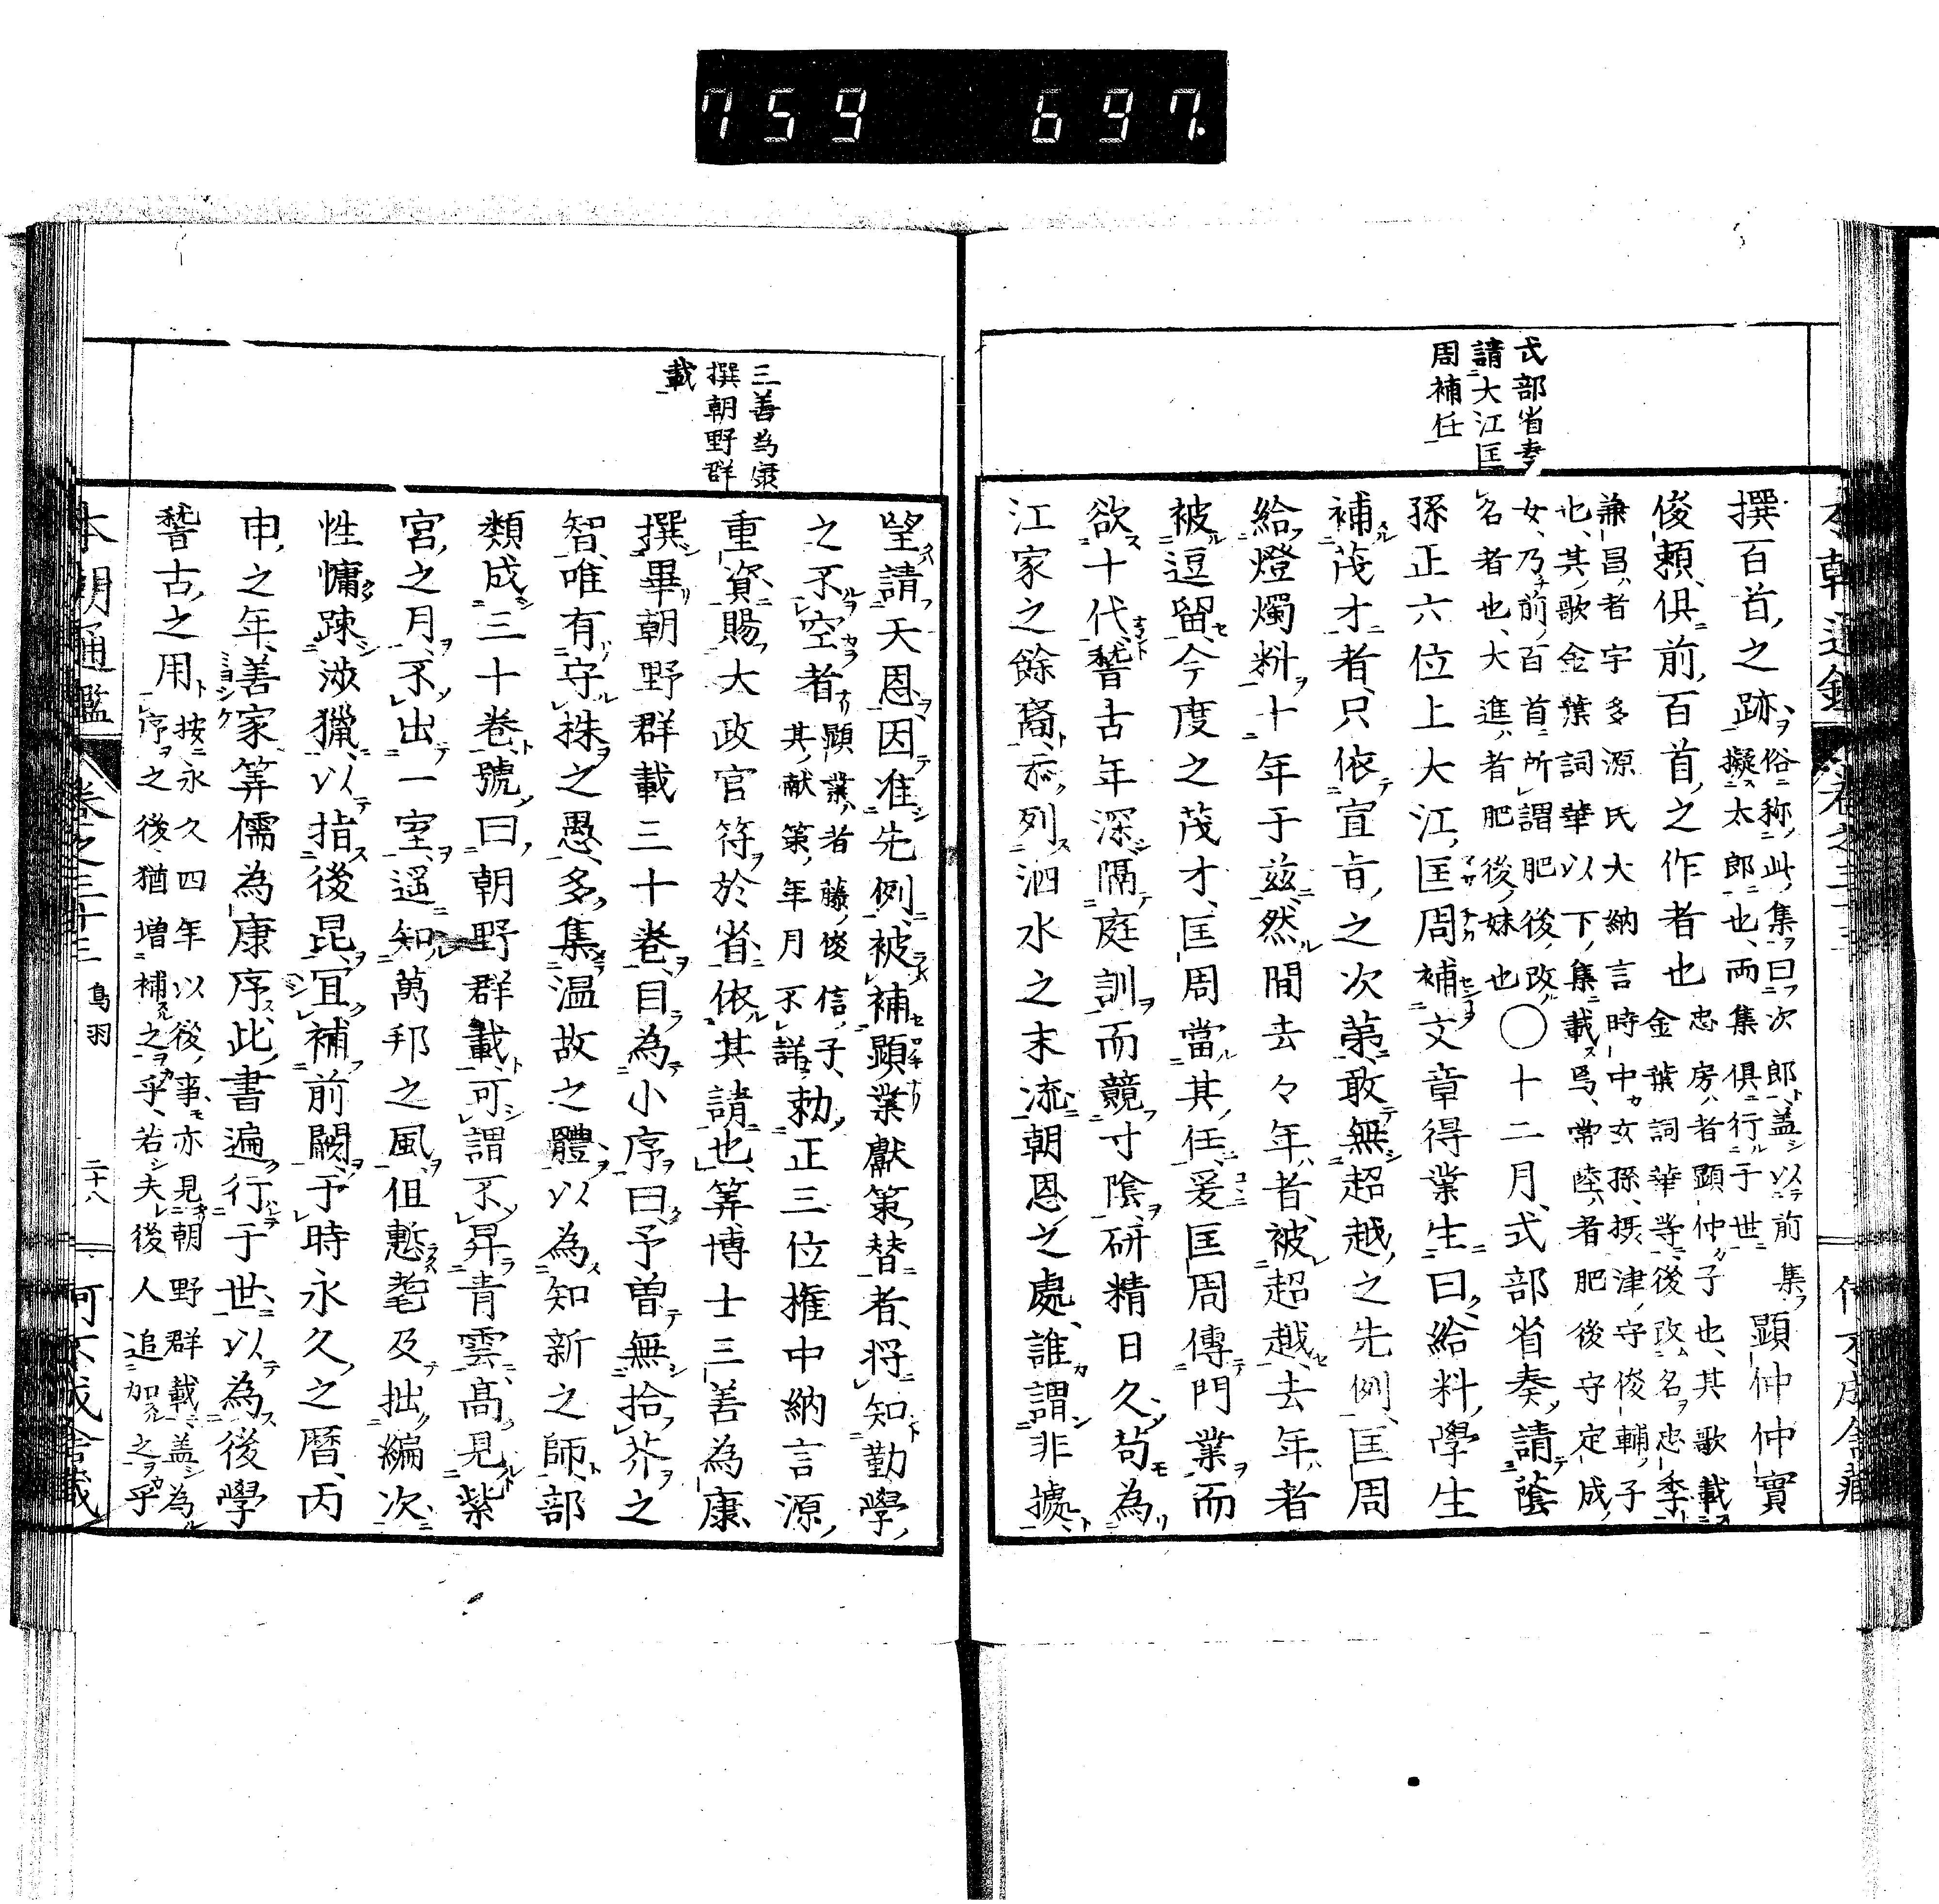 759 697.
式部省奏
請大江匡
周補任
撰百首之跡俗称此集曰次郎盖以前集
擬太郎也両集倶行于世顕仲仲實
俊頼倶前百首之作者也忠房者顕仲子也其歌載
金葉詞華等後改名忠季
兼昌者宇多源氏大納言時中玄孫摂津守俊輔子
也其歌金葉詞華以下集載焉常陸者肥後守定成
女乃前百首所謂肥後改
名者也大進者肥後妹也〇十二月式部省奏請蔭
孫正六位上大江匡周補文章得業生曰給料學生
補茂才者只依宣旨之次第敢無超越之先例匡周
給燈燭料十年于茲然間去々年者被超越去年者
被逗留今度之茂才匡周當其任爰匡周傳門業而
欲十代稽古年深隔庭訓而競寸陰研精日久苟為
江家之餘裔忝列泗水之末流朝恩之處誰謂非據
三善為康
撰朝野群
載
望請天恩因准先例被補顕業獻策替者将知勤學
之不空者顕業者藤俊信子
其献策年月不詳勅正三位権中納言源
重資賜大政官符於省依其請也筭博士三善為康
撰畢朝野群載三十巻自為小序曰予曽無拾芥之
智唯有守株之愚多集温故之體以為知新之師部
類成三十卷號曰朝野群載可謂不昇青雲高見紫
宮之月不出一室遥知萬邦之風但慙耄及拙編次
性慵踈渉獵以指後昆冝補前闕于時永久之暦丙
申之年善家筭儒為康序此書遍行于世以為後學
稽古之用按永久四年以後事亦見朝野群載盖為
序之後猶増補之乎若夫後人追加之乎
本朝通鑑 卷之三十三 鳥羽 二十八